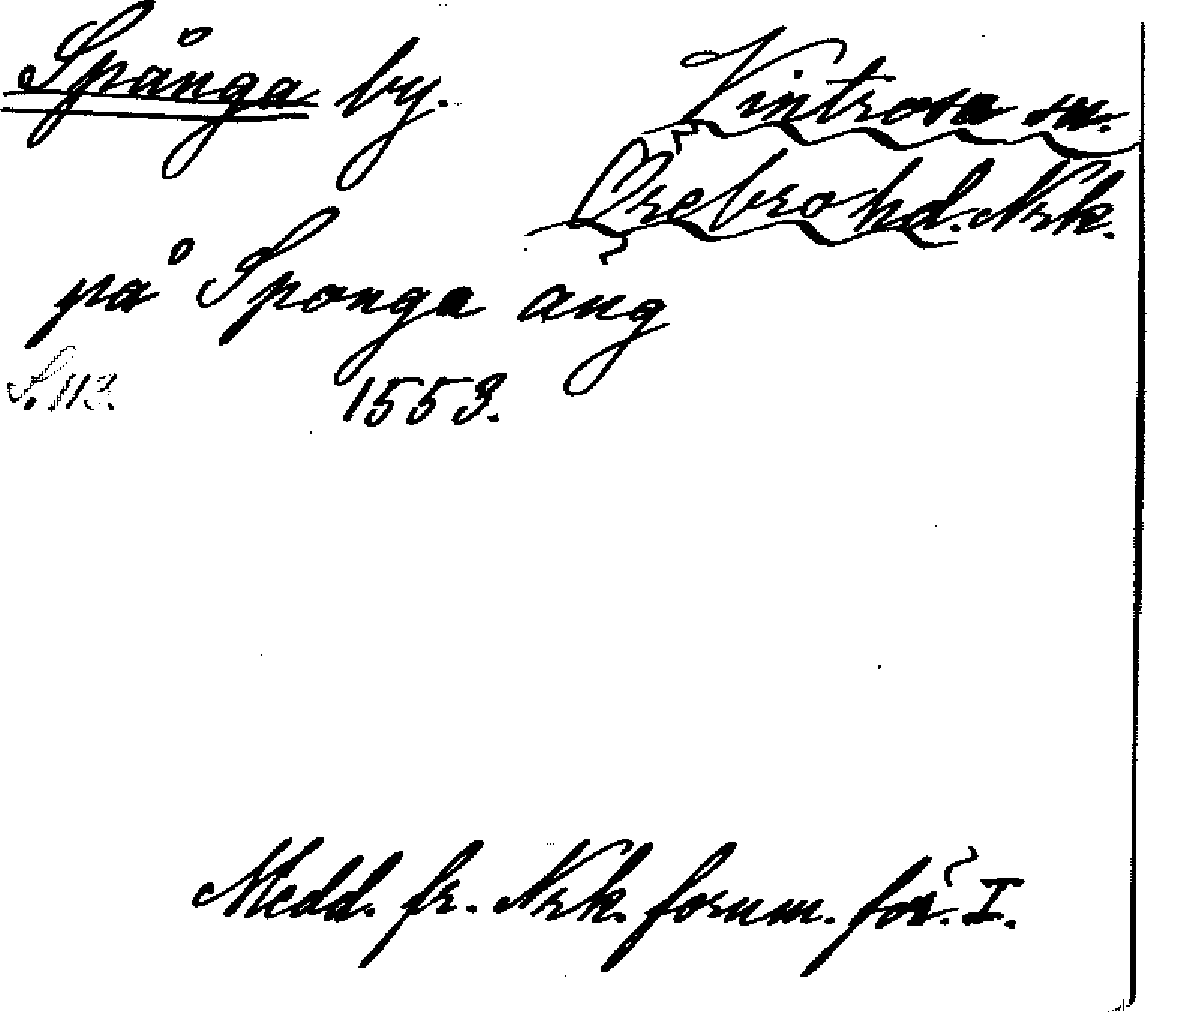 Spånga by. Vintrosa sn.
Örebro hd. Nrk.
på Sponga äng
S. 113. 1553.
Medd. fr. Nrk. fornm. för. I.